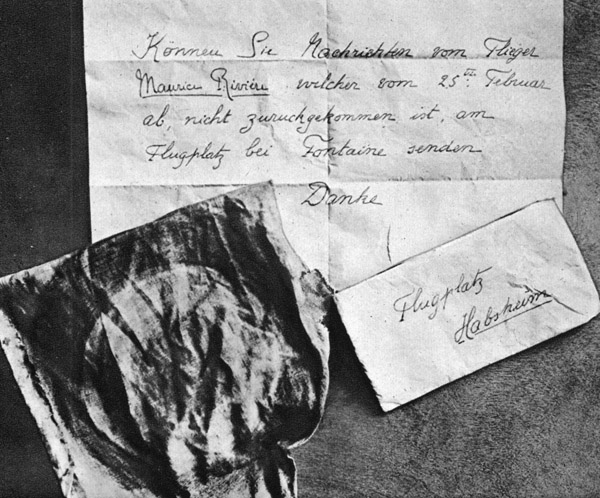 Können Sie Nachrichten vom Flieger
Maurice Rivière welcher vom 25ten Februar
ab, nicht zuruchgekommen ist, am
Flugplatz bei Fontaine senden
Danke
Flugplatz
Habsheim